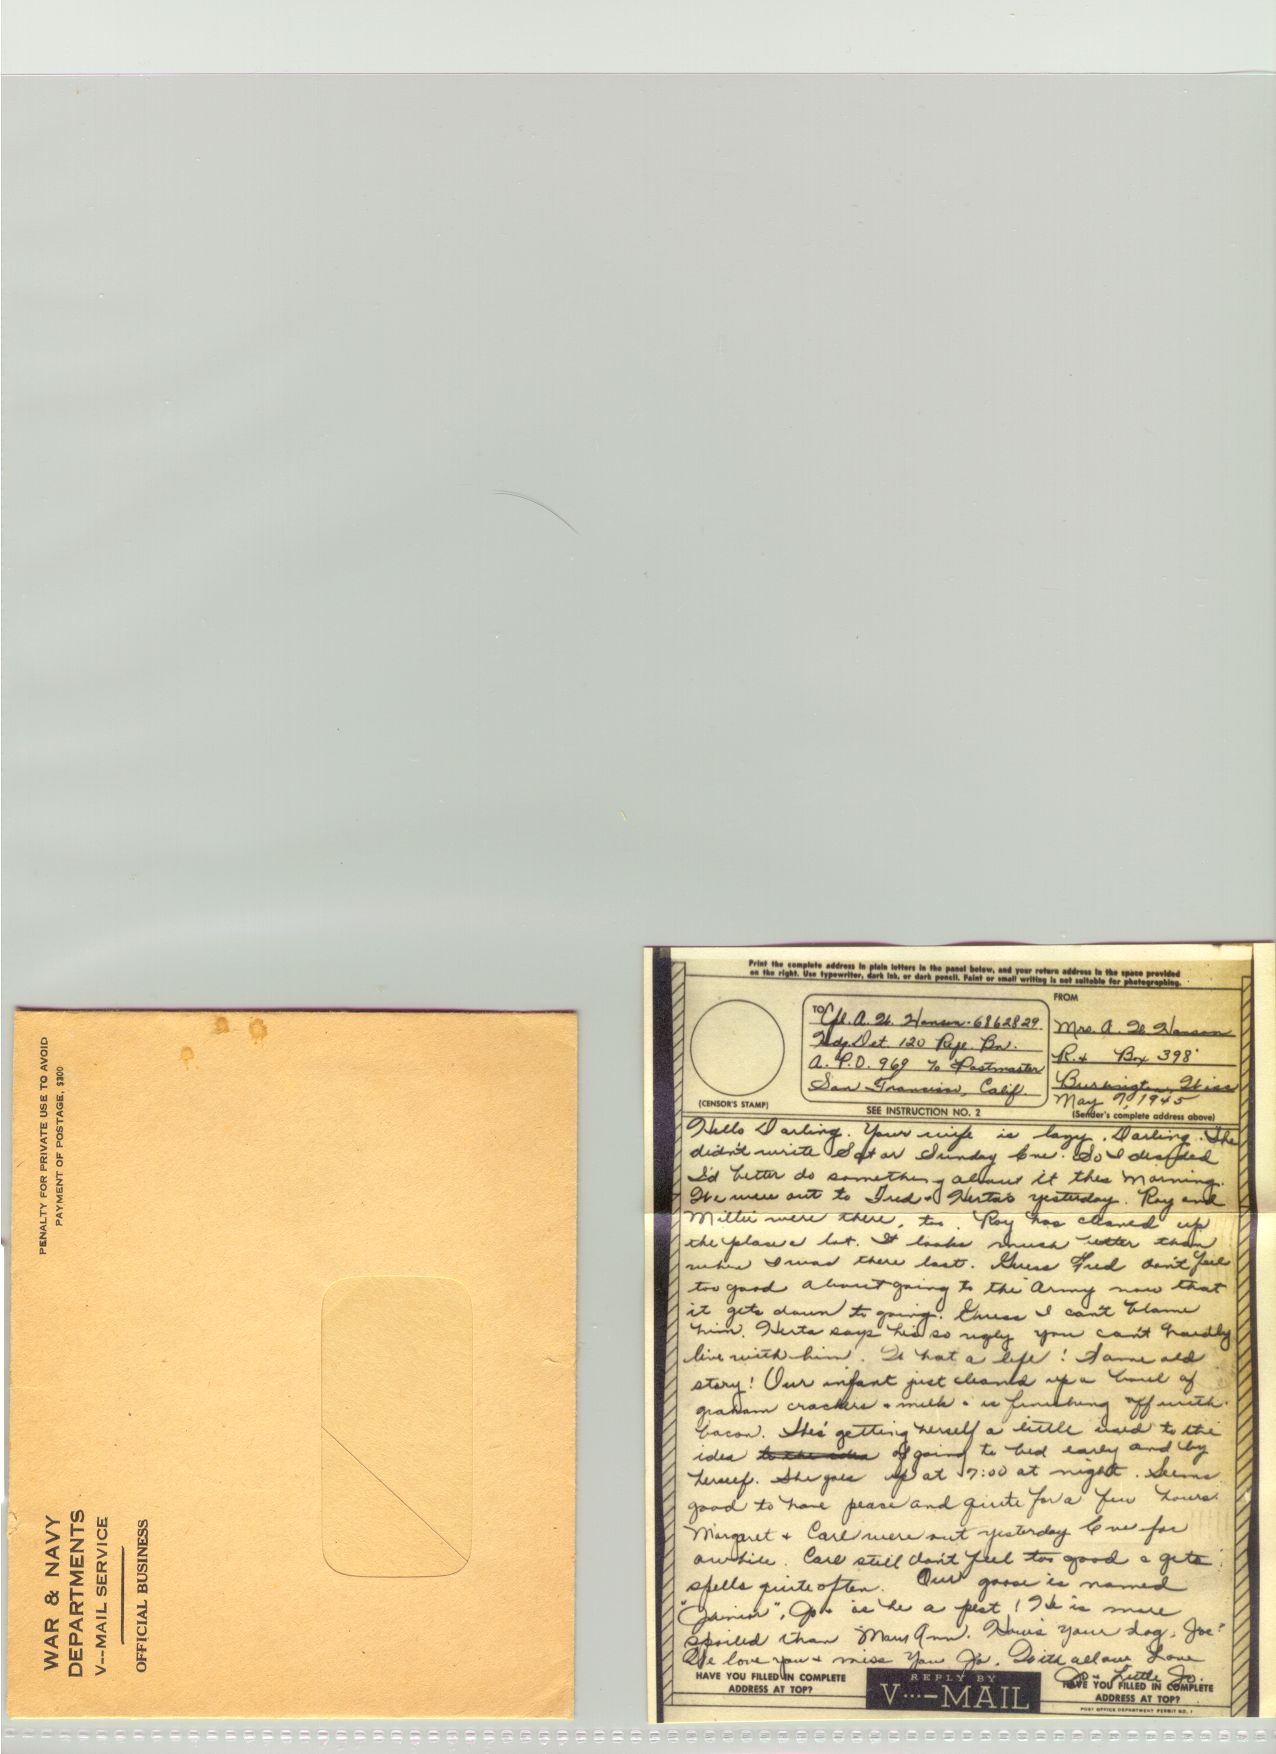 PENALTY FOR PRIVATE USE TO AVOID
PAYMENT OF POSTAGE, $300
WAR & NAVY
DEPARTMENTS
V--MAIL SERVICE
OFFICIAL BUSINESS
Print the complete address in plain letters in the panel below, and your return address in the space provided
on the right. Use typewriter, dark ink, or dark pencil. Faint or small writing is not suitable for photographing.
(CENSOR'S STAMP)
TO
Cpl. A. W. Hansen - 6862829
Hdq. Det. 120 Repl. Bn.
A. P. O. 969 % Postmaster
San Francisco, Calif.
SEE INSTRUCTION NO. 2
FROM
Mrs. A. W. Hansen
Box 398
Burlington, Wisc
May 7, 1945
(Sender's complete address above)
Hello Darling. Your wife is lazy, Darling. She
didn't write Sat or Sunday Eve. So I decided
I'd better do something about it this morning.
We were out to Fred & Herta's yesterday. Roy and
Millie were there, too. Roy has cleaned up
the place a lot. It looks much better than
when I was there last. Guess Fred don't feel
too good about going to the Army now that
it gets down to going. Guess I can't blame
him. Herta says his so ugly you can't hardly
live with him. What a life! Same old
story! Our infant just cleaned up a bowl of
graham crackers & milk & is finishing off with
bacon. She's getting herself a little used to the
idea to the idea of going to bed early and by
herself. She goes up at 7:00 at night. Seems
good to have peace and quite for a few hours.
Margaret & Carl were out yesterday Eve for
awhile. Carl still don't feel too good & gets
spells quite often. Our goose is named
"Junior", is he a pest! He is more
spoiled than Mary Ann. How's your dog, Joe?
We love you & miss you Jo. With all our Love
Jo & Little Jo.
HAVE YOU FILLED IN COMPLETE
ADDRESS AT TOP?
REPLY BY
V···-MAIL
HAVE YOU FILLED IN COMPLETE
ADDRESS AT TOP?
POST OFFICE DEPARTMENT PERMIT NO. 1